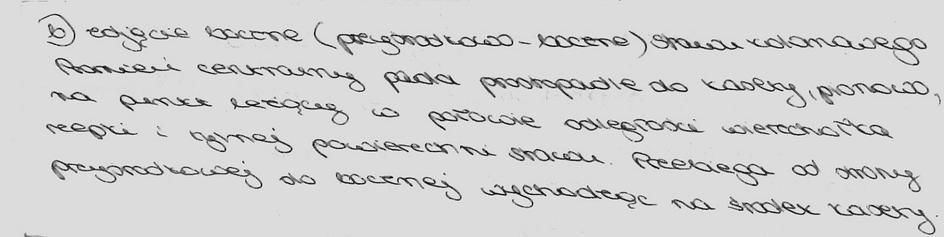 b) zdjęcie boczne (przyśrodkowo-boczne) stawu kolanowego
Promień centralny pada prostopadle do kasety, pionowo,
na punkt leżący w połowie odległości wierzchołka
rzepki i tylnej powierzchni stawu. Przebiega od strony
przyśrodkowej do bocznej wychodząc na środek kasety.